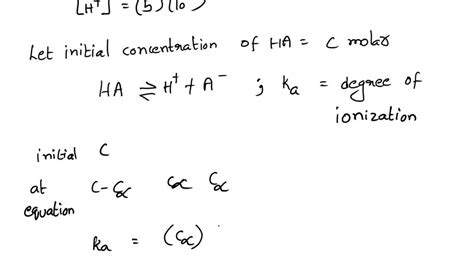 [H⁺] = (5)(10
Let initial concentration of HA = C molar
HA ⇌ H⁺ + A⁻ ; ka = degree of
ionization
initial C
at C-Cα Cα Cα
equation
ka = (Cα)